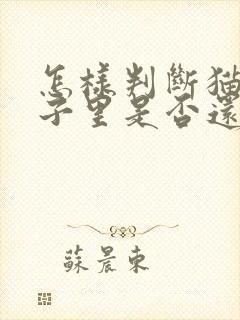 怎樣判斷猫
子里是否還
蘇晨東